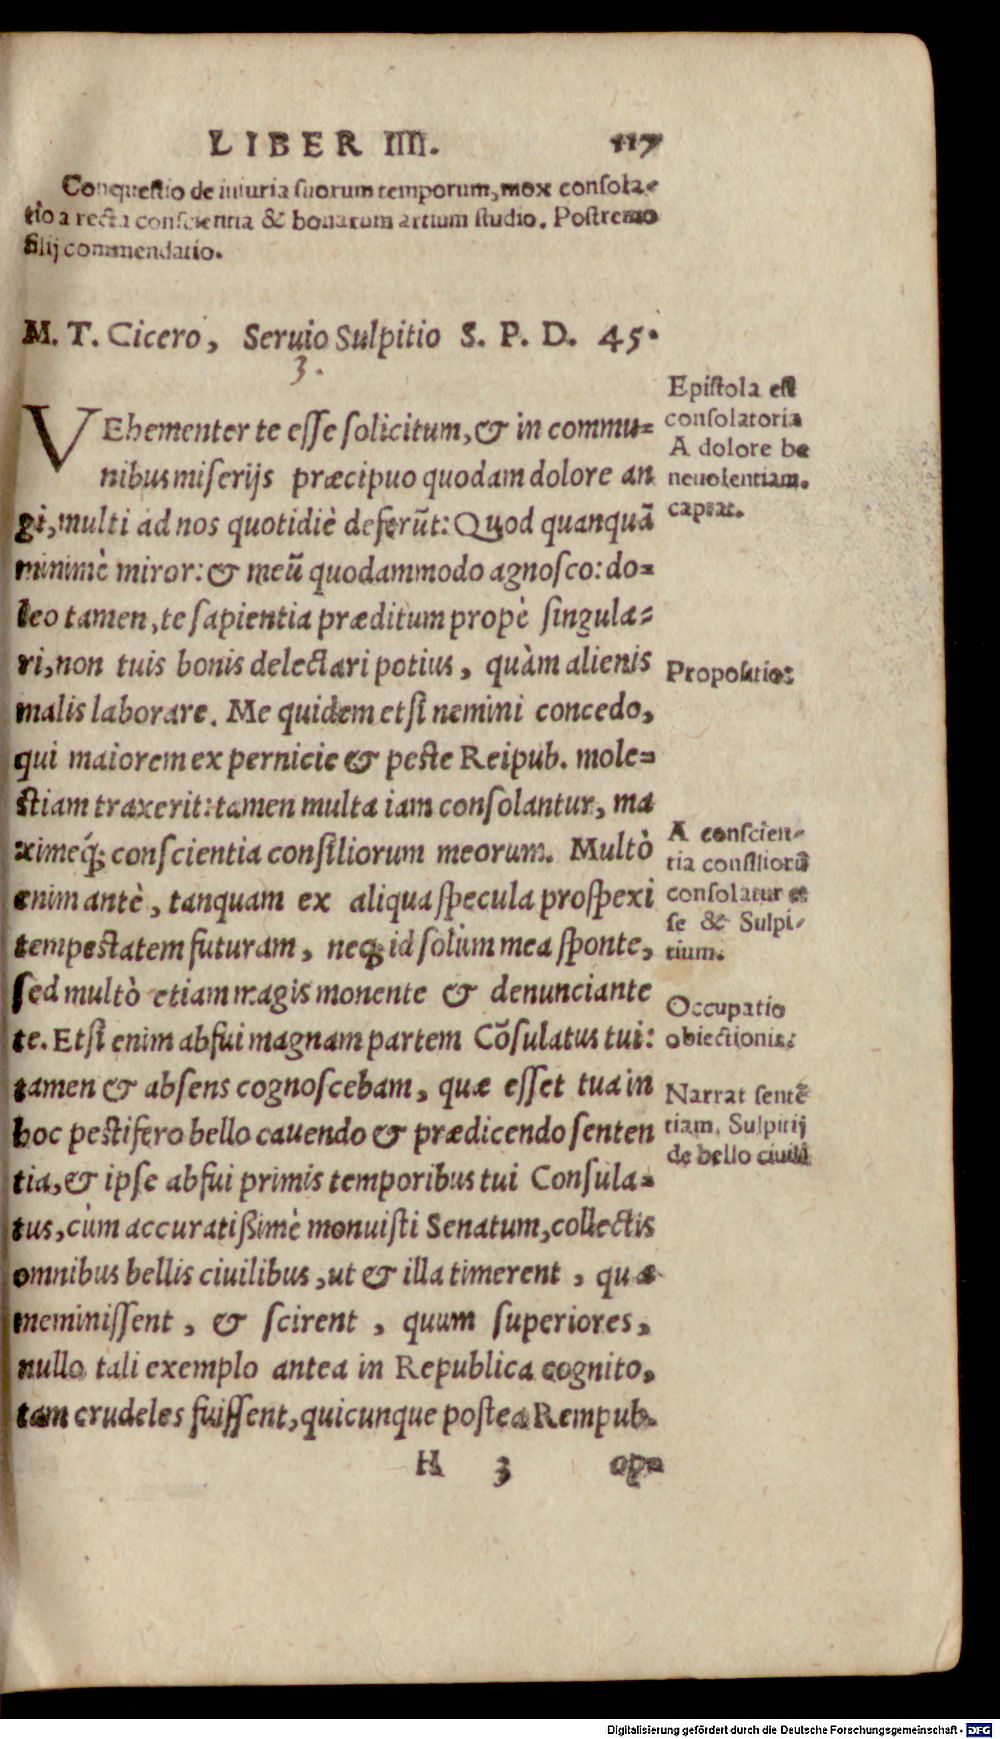 LIBER IIII. 117
Conquestio de iniuria suorum temporum, mox consola-
tio a recta conscientia & bonarum artium studio. Postremo
filij commendatio.
M. T. Cicero, Seruio Sulpitio S. P. D. 45.
3.
VEhementer te esse solicitum, & in commu-
nibus miserijs præcipuo quodam dolore an
gi, multi ad nos quotidiè deferūt: Quod quanquā
minimè miror: & meū quodammodo agnosco: do-
leo tamen, te sapientia præditum propè singula-
ri, non tuis bonis delectari potius, quàm alienis
malis laborare. Me quidem etsi nemini concedo,
qui maiorem ex pernicie & peste Reipub. mole-
stiam traxerit: tamen multa iam consolantur, ma
ximeq́; conscientia consiliorum meorum. Multò
enim antè, tanquam ex aliqua specula prospexi
tempestatem futuram, neq; id solùm mea sponte,
sed multò etiam magis monente & denunciante
te. Etsi enim abfui magnam partem Cōsulatus tui:
tamen & absens cognoscebam, quæ esset tua in
hoc pestifero bello cauendo & prædicendo senten
tia, & ipse abfui primis temporibus tui Consula-
tus, cùm accuratißimè monuisti Senatum, collectis
omnibus bellis ciuilibus, ut & illa timerent, quæ
meminissent, & scirent, quum superiores,
nullo tali exemplo antea in Republica cognito,
tam crudeles fuissent, quicunque postea Rempub.
H 3 opp
Epistola est
consolatoria
A dolore be
neuolentiam.
captat.
Propositio:
A conscien-
tia consiliorū
consolatur et
se & Sulpi-
tium.
Occupatio
obiectionis:
Narrat sentē
tiam, Sulpitij
de bello ciuili
Digitalisierung gefördert durch die Deutsche Forschungsgemeinschaft - DFG